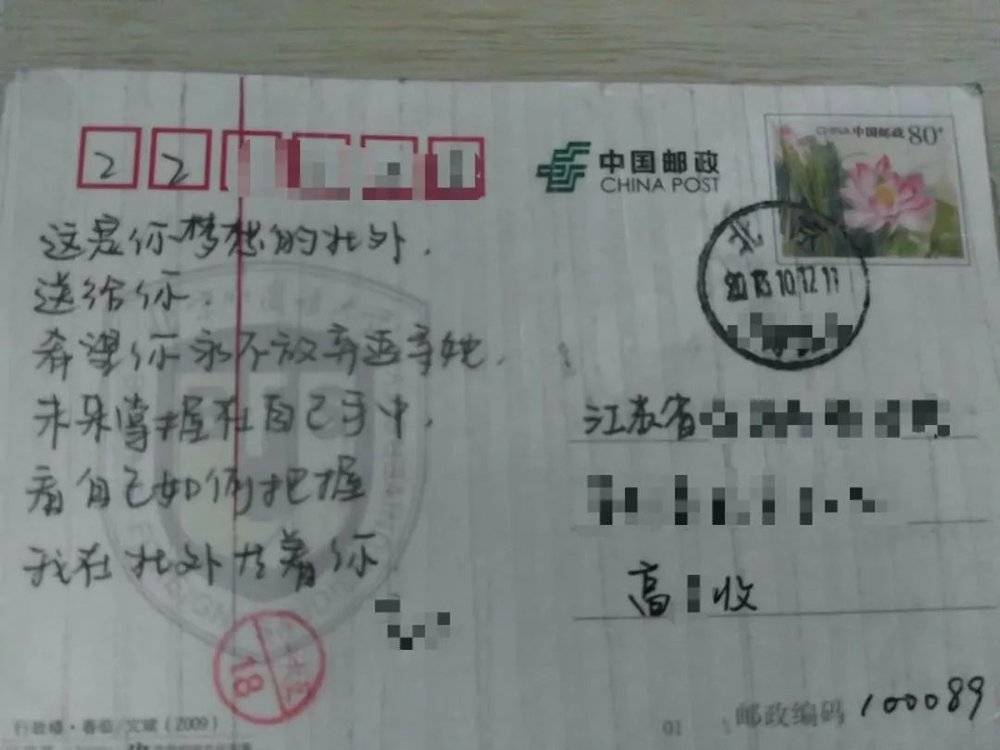 2 2
中国邮政
CHINA POST
CHINA 中国邮政 80分
北京
10.12.11
这是你梦想的北外，
送给你．
希望你永不放弃追寻她．
未来掌握在自己手中，
看自己如何把握
我在北外等着你
江苏省
高 收
18
行政楼·春临/文斌（2009）
01
邮政编码 100089